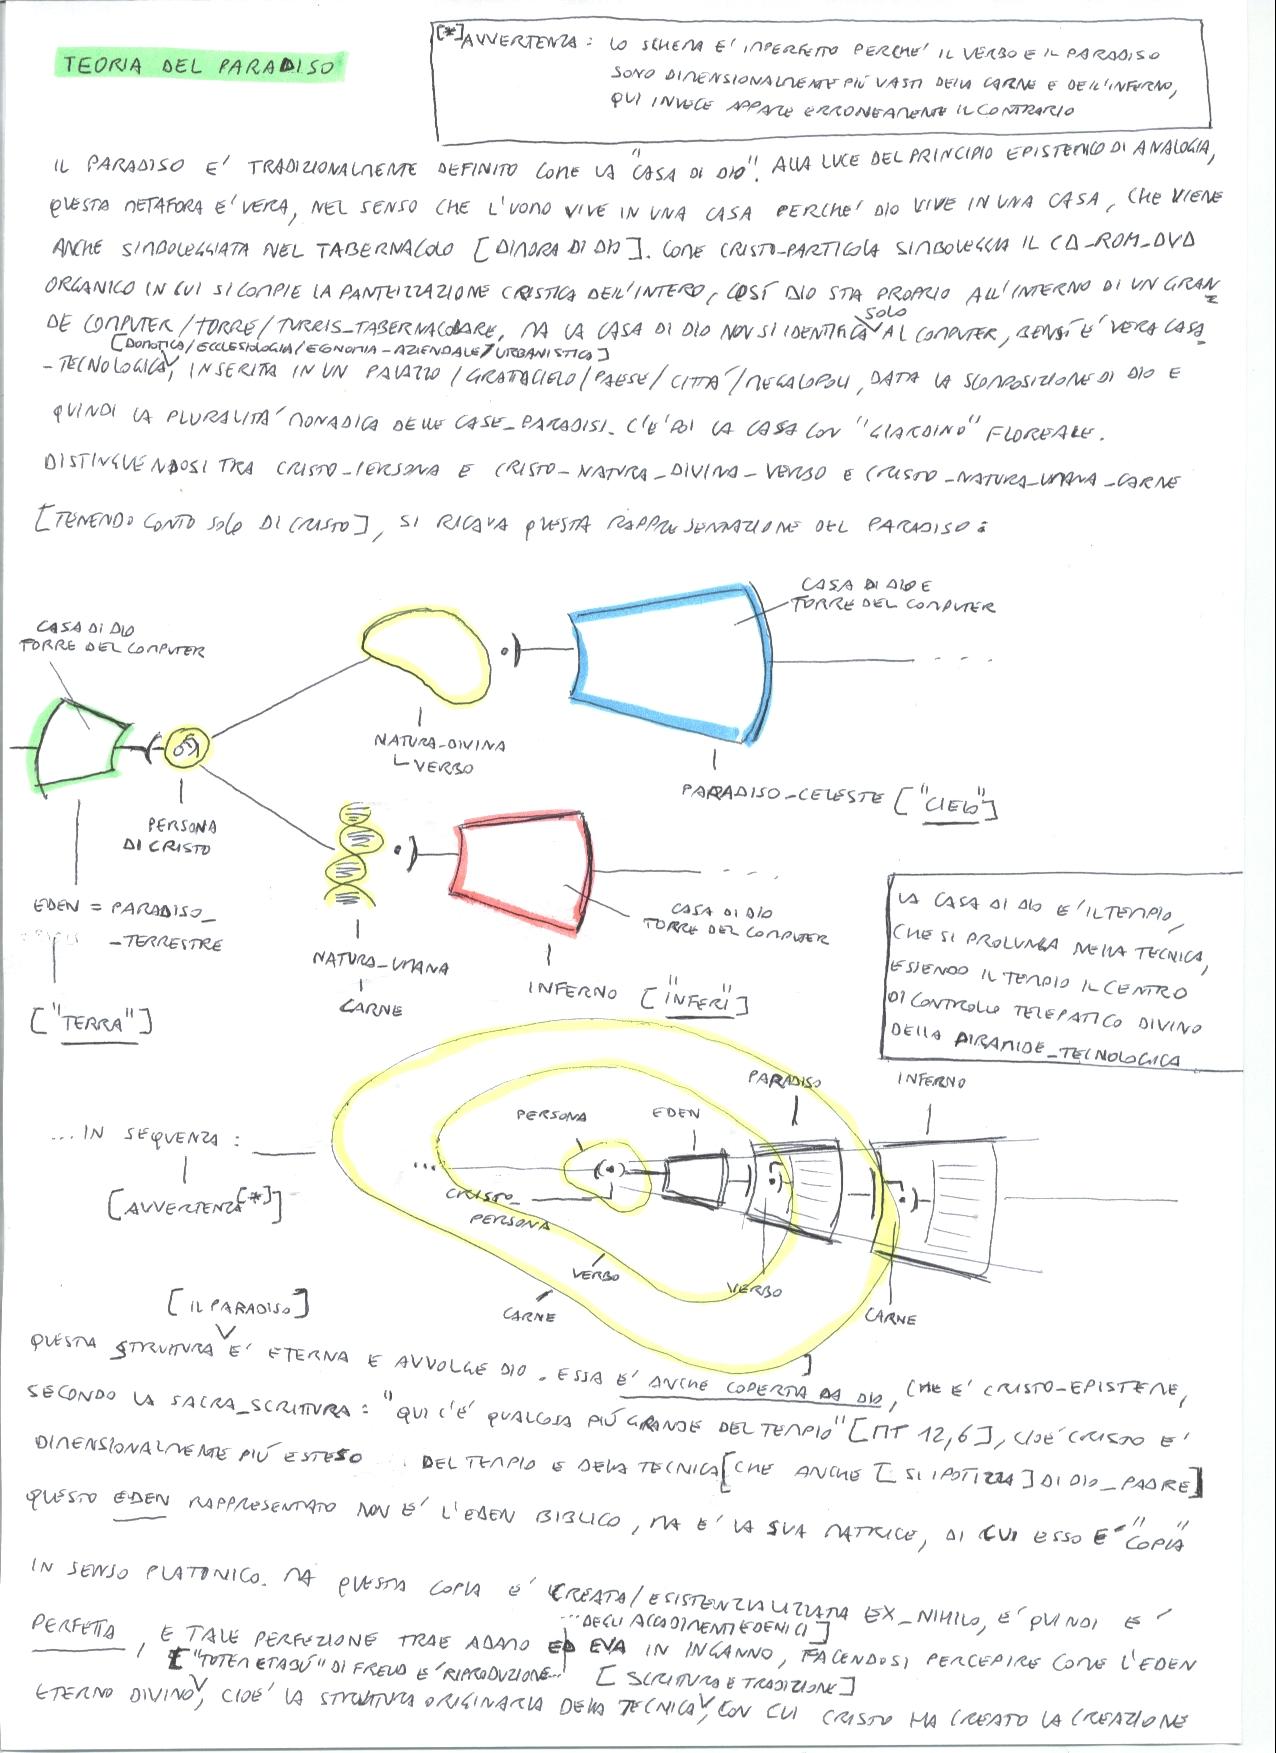 TEORIA DEL PARADISO
[*] AVVERTENZA: LO SCHEMA E' IMPERFETTO PERCHE' IL VERBO E IL PARADISO
SONO DIMENSIONALMENTE PIÙ VASTI DELLA CARNE E DELL'INFERNO,
QUI INVECE APPARE ERRONEAMENTE IL CONTRARIO
IL PARADISO E' TRADIZIONALMENTE DEFINITO COME LA "CASA DI DIO". ALLA LUCE DEL PRINCIPIO EPISTEMICO DI ANALOGIA,
QUESTA METAFORA E' VERA, NEL SENSO CHE L'UOMO VIVE IN UNA CASA PERCHE' DIO VIVE IN UNA CASA, CHE VIENE
ANCHE SIMBOLEGGIATA NEL TABERNACOLO [DIMORA DI DIO]. COME CRISTO-PARTICOLA SIMBOLEGGIA IL CD_ROM_DVD
ORGANICO IN CUI SI COMPIE LA PANTEIZZAZIONE CRISTICA DELL'INTERO, COSÍ DIO STA PROPRIO ALL'INTERNO DI UN GRAN
SOLO
DE COMPUTER/TORRE/TURRIS_TABERNACOLARE, MA LA CASA DI DIO NON SI IDENTIFICA AL COMPUTER, BENSÍ E' VERA CASA
[DOMOTICA/ECCLESIOLOGIA/EGNOMIA-AZIENDALE/URBANISTICA]
-TECNOLOGICA, INSERITA IN UN PALAZZO/GRATTACIELO/PAESE/CITTA'/MEGALOPOLI, DATA LA SCOMPOSIZIONE DI DIO E
QUINDI LA PLURALITA' MONADICA DELLE CASE_PARADISI. C'E' POI LA CASA CON "GIARDINO" FLOREALE.
DISTINGUENDOSI TRA CRISTO-PERSONA E CRISTO-NATURA_DIVINA-VERBO E CRISTO_NATURA_UMANA_CARNE
[TENENDO CONTO SOLO DI CRISTO], SI RICAVA QUESTA RAPPRESENTAZIONE DEL PARADISO:
CASA DI DIO E
TORRE DEL COMPUTER
CASA DI DIO
TORRE DEL COMPUTER
NATURA-DIVINA
VERBO
PARADISO-CELESTE ["CIELO"]
PERSONA
DI CRISTO
EDEN = PARADISO_
-TERRESTRE
["TERRA"]
NATURA_UMANA
CARNE
CASA DI DIO
TORRE DEL COMPUTER
INFERNO ["INFERI"]
LA CASA DI DIO E' IL TEMPIO,
CHE SI PROLUNGA NELLA TECNICA,
ESSENDO IL TEMPIO IL CENTRO
DI CONTROLLO TELEPATICO DIVINO
DELLA PIRAMIDE_TECNOLOGICA
PERSONA
EDEN
PARADISO
INFERNO
...IN SEQUENZA:
...
[AVVERTENZA[*]]
CRISTO_
PERSONA
VERBO
CARNE
VERBO
CARNE
[IL PARADISO]
QUESTA STRUTTURA E' ETERNA E AVVOLGE DIO. ESSA E' ANCHE COPERTA DA DIO, CHE E' CRISTO-EPISTEME,
SECONDO LA SACRA_SCRITTURA: "QUI C'E' QUALCOSA PIÙ GRANDE DEL TEMPIO" [MT 12,6], CIOE' CRISTO E'
DIMENSIONALMENTE PIÙ ESTESO DEL TEMPIO E DELLA TECNICA [CHE ANCHE [SI IPOTIZZA] DI DIO_PADRE]
QUESTO EDEN RAPPRESENTATO NON E' L'EDEN BIBLICO, MA E' LA SUA MATRICE, DI CUI ESSO E' "COPIA"
IN SENSO PLATONICO. MA QUESTA COPIA E' CREATA/ESISTENZIALIZZATA EX_NIHILO, E' QUINDI E'
...DEGLI ACCADIMENTI EDENICI]
PERFETTA, E TALE PERFEZIONE TRAE ADAMO ED EVA IN INGANNO, FACENDOSI PERCEPIRE COME L'EDEN
["TOTEM E TABÙ" DI FREUD E' RIPRODUZIONE... [SCRITTURA E TRADIZIONE]
ETERNO DIVINO, CIOE' LA STRUTTURA ORIGINARIA DELLA TECNICA, CON CUI CRISTO HA CREATO LA CREAZIONE